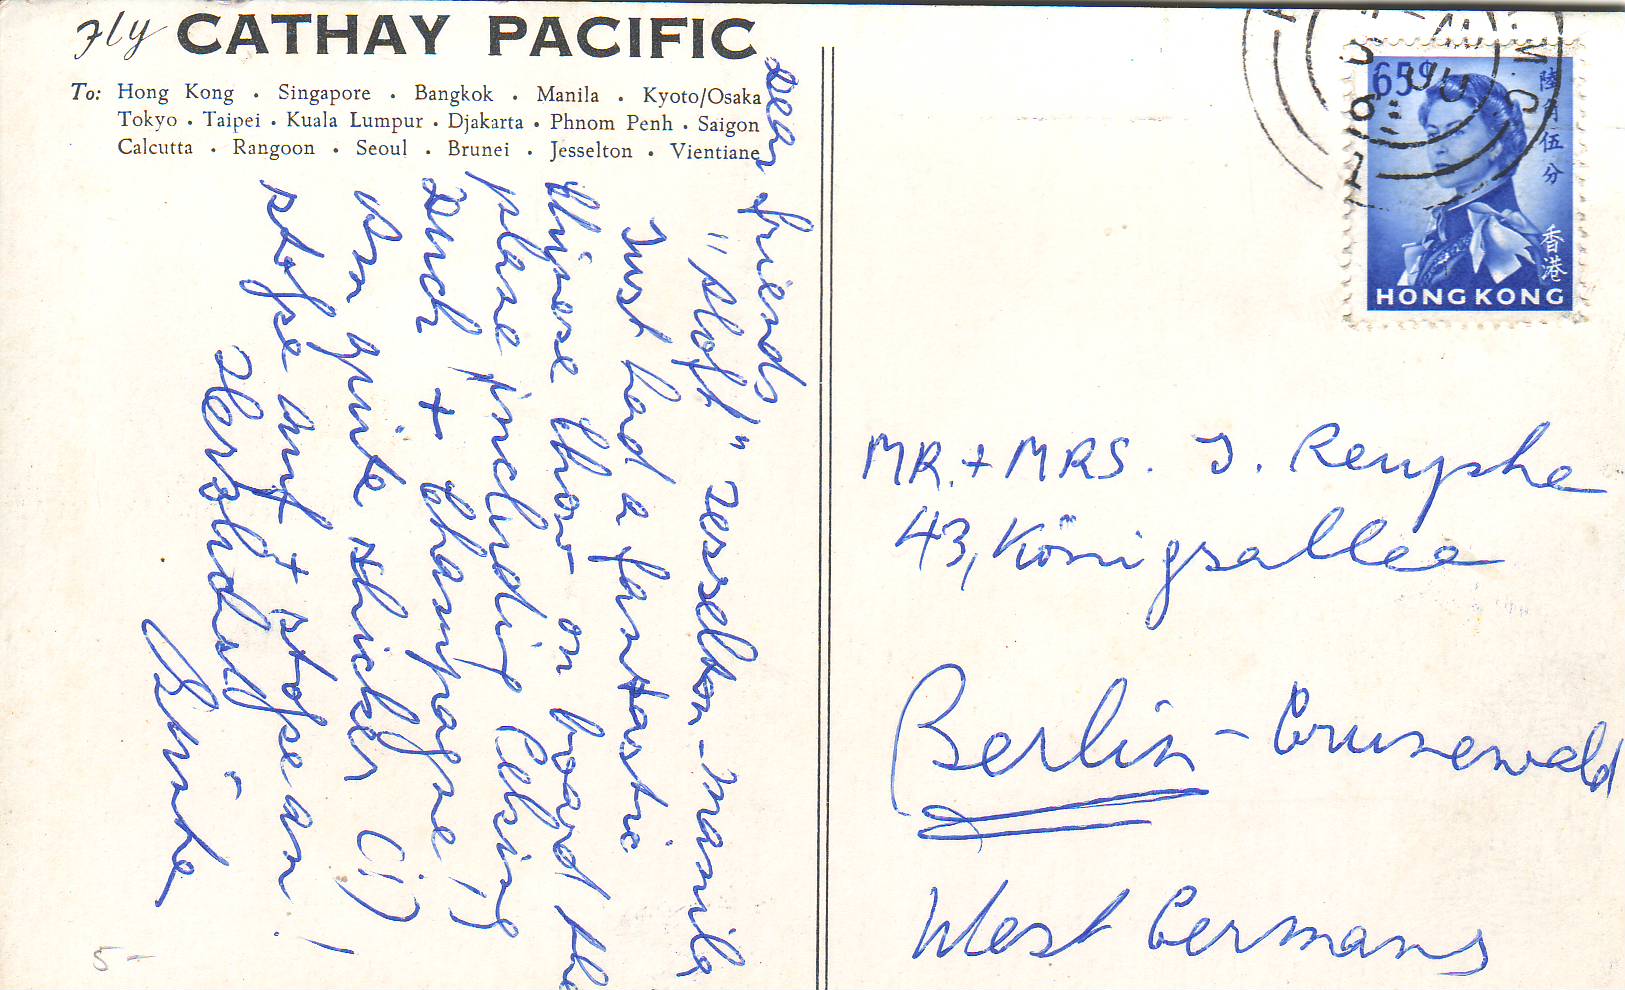 Fly CATHAY PACIFIC
To: Hong Kong . Singapore . Bangkok . Manila . Kyoto/Osaka
Tokyo . Taipei . Kuala Lumpur . Djakarta . Phnom Penh . Saigon
Calcutta . Rangoon . Seoul . Brunei . Jesselton . Vientiane
Dear friends
" aloft " Jesselton-Manila
Just had a fantastic
Chinese Chow on board the
plane including Peking
Duck + champagne!)
Am quite shicker (!)
!
5-
65¢
香港
HONG KONG
MR. + MRS. J.
43, Königsallee
Berlin - Grunewald
West Germany